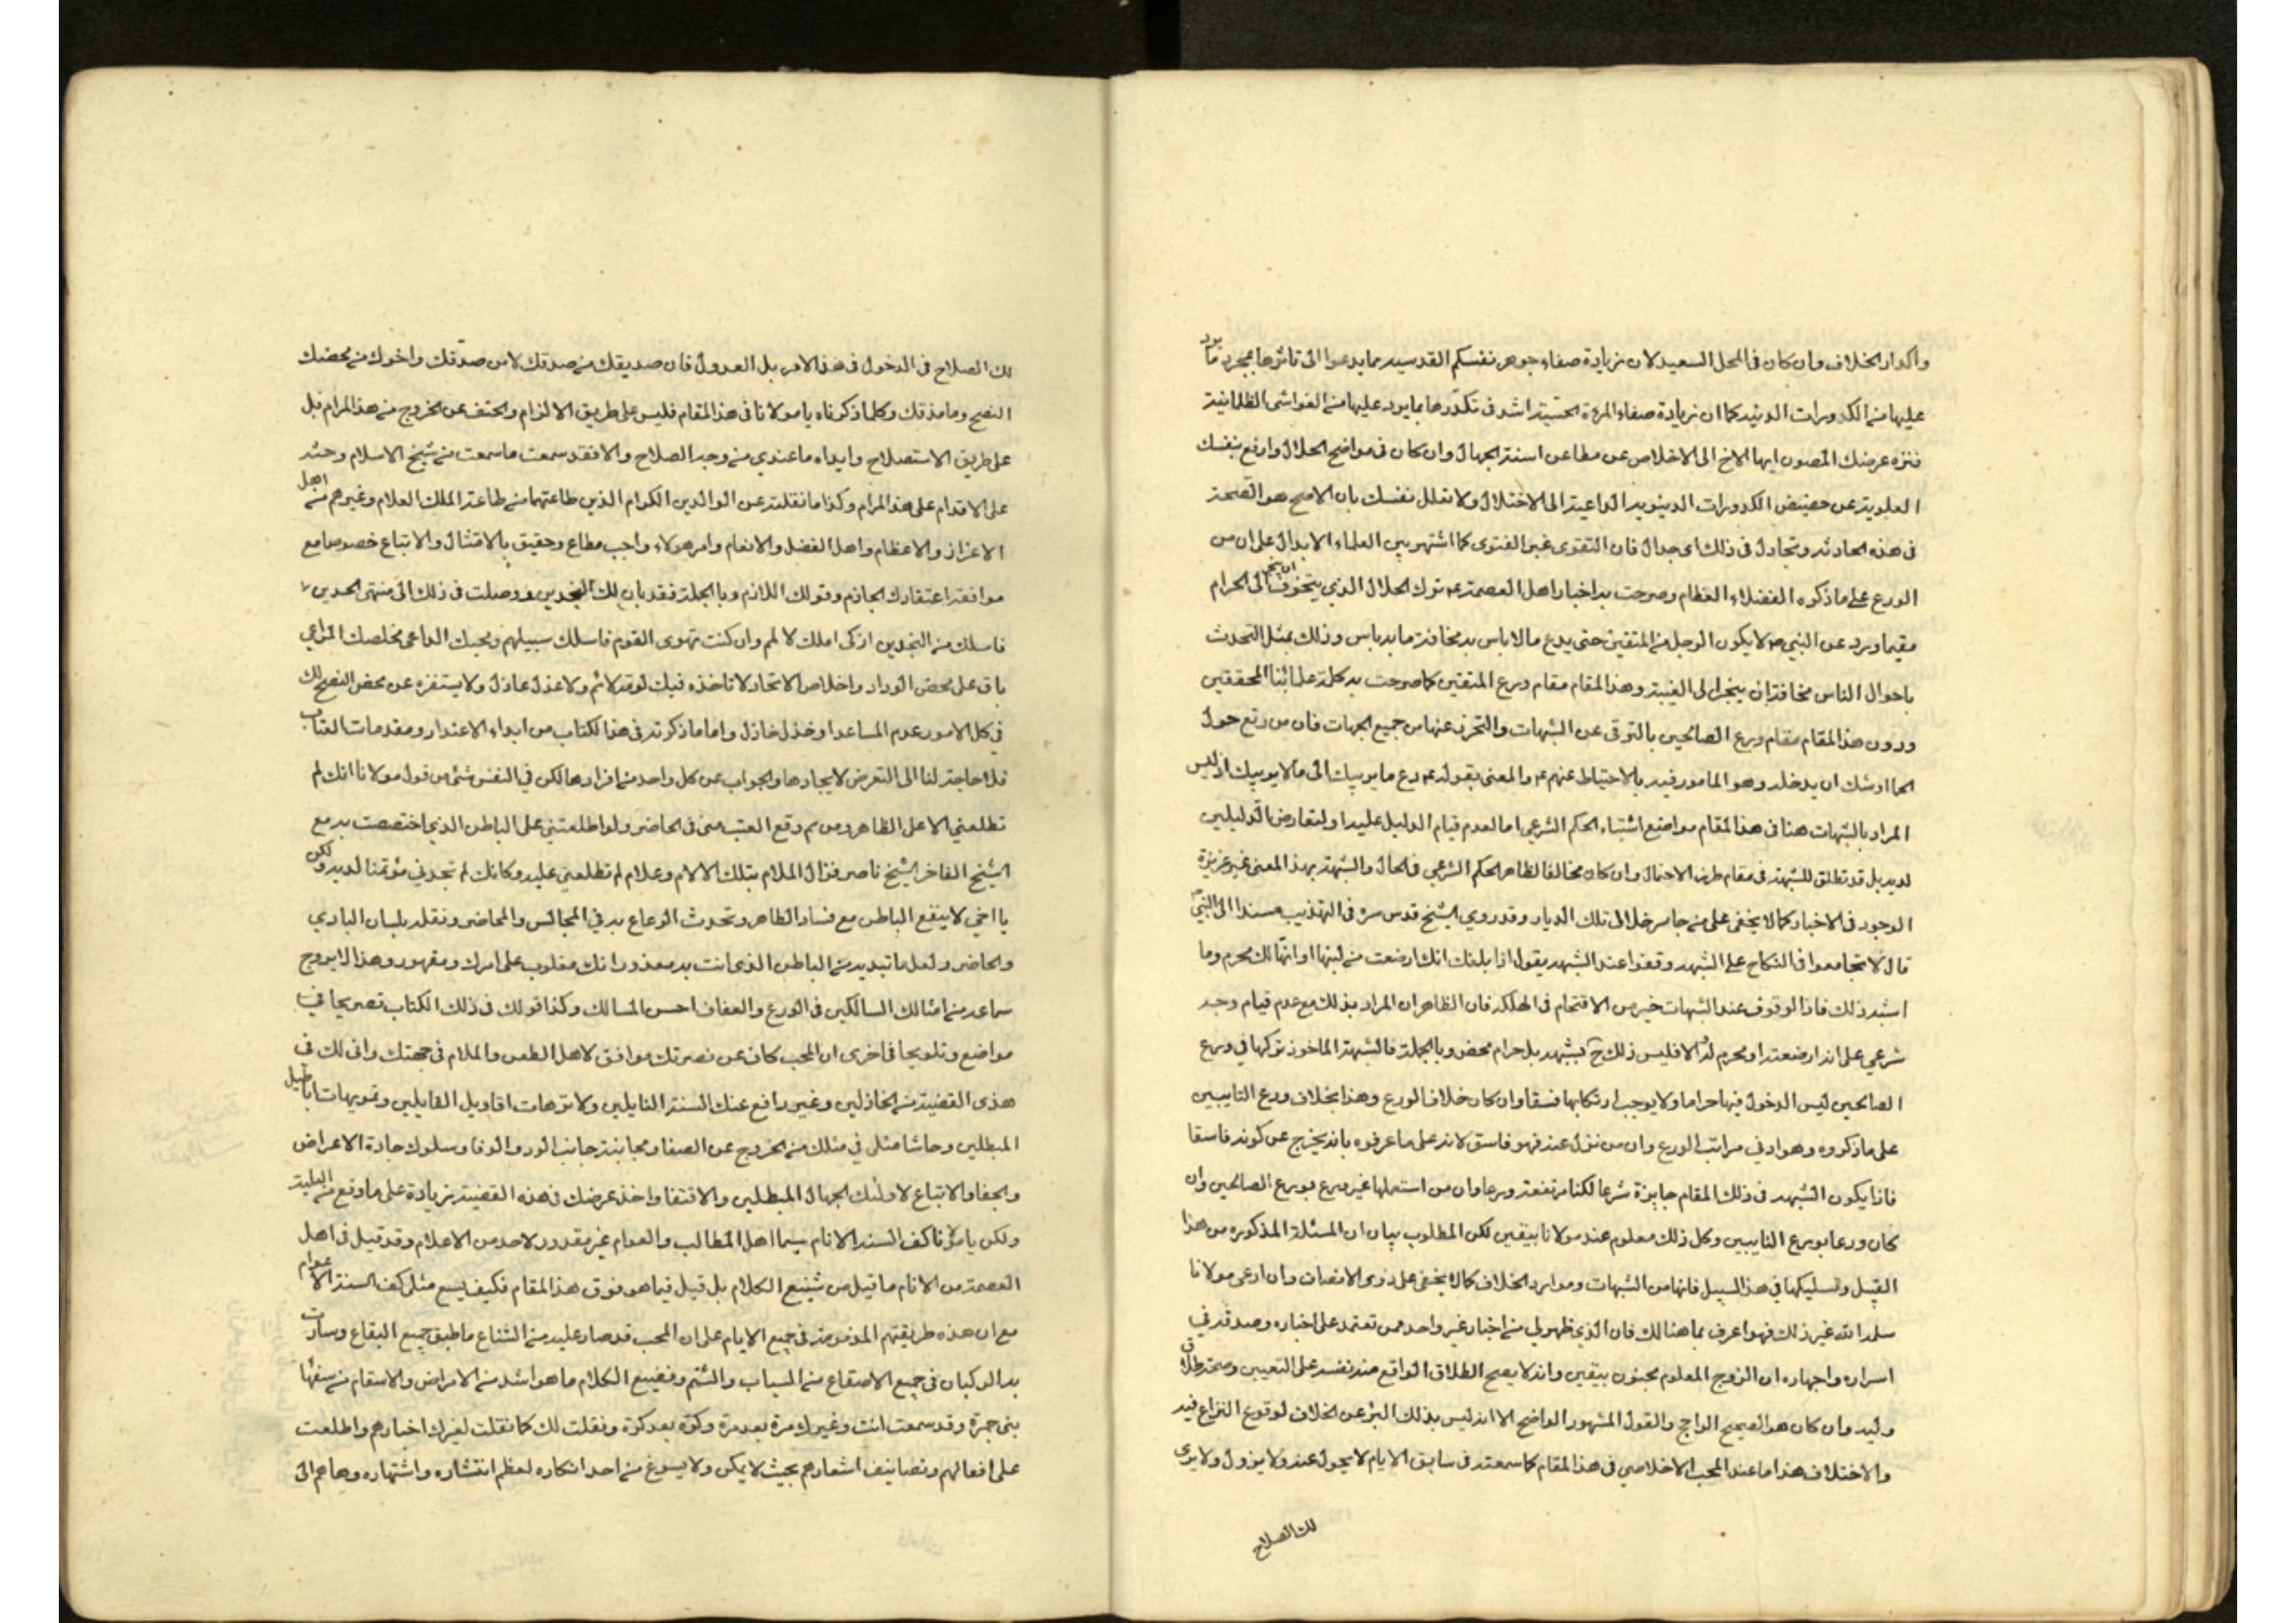 واكدار الخلاف وان كان في المحل السعيد لان زيادة صفاء جوهر نفسكم القدسيه مما يدعوا الى تاثرها بمجرد ما يرد
عليها من الكدورات الدنيه كما ان زيادة صفاء المرءة الحسّية اشد في تكدّرها بما يرد عليها من الغواشى الظلمانية
فنزه عرضك المصون ايها الاخ الى الاخلاص عن مطاعن السنة الجهال وان كان في مواضع الحلال وارفع بنفسك
العلوية عن حضيض الكدورات الدينويه الداعية الى الاختلال ولا تعلل نفسك بان الاصح هو الصحة
في هذه الحادثه وتجادل في ذلك اى جدال فان التقوى غير الفتوى كما اشتهر بين العلماء الابدال على ان من
الورع على ما ذكره الفضلاء العظام وصرحت به اخبار اهل العصمة ع‍ ترك الحلال الذي يتخوف ان ينجر الى الحرام
فقيما ورد عن النبي ص لا يكون الرجل من المتقين حتى يدع ما لا باس به مخافة ما به باس وذلك بمثل التحدث
باحوال الناس مخافة ان ينجر الى الغيبة وهذا المقام مقام ورع المتقين كما صرحت به كلمة علمائنا المحققين
ودون هذا المقام مقام ورع الصالحين بالتوقى عن الشبهات والتحرز عنها من جميع الجهات فان من رتع حول
الحما اوشك ان يدخله وهو المامور فيه بالاحتياط عنهم ع‍ والمعنى بقوله ع‍ دع ما يريبك الى ما لا يريبك اذ ليس
المراد بالشبهات هنا في هذا المقام مواضع اشتباه الحكم الشرعي اما لعدم قيام الدليل عليه او لتعارض الدليلين
لديه بل قد تطلق للشبهة في مقام طرف الاحتمال وان كان مخالفا لظاهر الحكم الشرعي في الحال والشبهة بهذا المعنى غير عزيزة
الوجود في الاخبار كما لا يخفى على من جاس خلال تلك الديار وقد روى الشيخ قدس سره في التهذيب مسندا الى النبي ص
قال لا تجامعوا في النكاح على الشبهه وقفوا عند الشبهه يقول اذا بلغك انك ارضعت من لبنها او انها لك محرم وما
اشبه ذلك فاذا الوقوف عند الشبهات خير من الاقتحام في الهلكة فان الظاهر ان المراد بذلك مع عدم قيام وجه
شرعي على انه ارضعته او محرم له الا فليس ذلك ح بشبهه بل حرام محض وبالجملة فالشبهة الماخوذ تركها في ورع
الصالحين ليس الدخول فيها حراما ولا يوجب ارتكابها فسقا وان كان خلاف الورع وهذا بخلاف ورع التايبين
على ما ذكروه وهو ادنى مراتب الورع وان من نزل عنه فهو فاسق لانه على ما عرفوه بانه يخرج عن كونه فاسقا
فاذا يكون الشبهه في ذلك المقام جايزة شرعا لكنا مرتفعة ورعا وان من استعملها غير ورع بورع الصالحين وان
كان ورعا بورع التايبين وكل ذلك معلوم عند مولانا بيقين لكن المطلوب بيان ان المسئلة المذكوره من هذا
القبيل وتسليكها في هذا السبيل فانها من الشبهات وموارد الخلاف كما لا يخفى على ذوى الانصاف وان ادعى مولانا
سلمه الله غير ذلك فهو اعرف بما هنالك فان الذي ظهر لي من اخبار غير واحد ممن تعتمد على اخباره وصدقه في
اسراره واجهاره ان الزوج المعلوم مجنون بيقين وانه لا يصح الطلاق الواقع منه نفسه على التعيين وصحة طلاق
وليه وان كان هو الصحيح الراجح والقول المشهور الواضح الا انه ليس بذلك البرئ عن الخلاف لوقوع النزاع فيه
والاختلاف هذا ما عند المحب الاخلاصي في هذا المقام كما سمعته في سابق الايام لا يحول عنه ولا يزول ولا يرى
لك الصلاح
لك الصلاح في الدخول في هذا الامر بل العدول فان صديقك من صدقك لا من صدّقك واخوك من محضك
النصح وما مذقك وكلما ذكرناه يا مولانا في هذا المقام فليس على طريق الالزام والحتف عن الخروج من هذا المرام بل
على طريق الاستصلاح وابداء ما عندي من وجه الصلاح والا فقد سمعت ما سمعت من شيخ الاسلام وحثه
على الاقدام على هذا المرام وكذا ما نقلته عن الوالدين الكرام الذين طاعتهما من طاعة الملك العلام وغيرهم من اهل
الاعزاز والاعظام واهل الفضل والانعام وامر هولاء واجب مطاع وحقيق بالامتثال والاتباع خصوصا مع
موافقة اعتقادك الجازم وقولك اللازم وبالجملة فقد بان لك النجدين ووصلت في ذلك الى منتهى الحدين
فاسلك من النجدين ازكى املك لا لم وان كنت تهوى القوم فاسلك سبيلهم ومحبك الداعى مخلصك المراعي
باق على محض الوداد واخلاص الاتحاد لا تاخذه فيك لومة لائم ولا عذل عاذل ولا يستفزه عن محض النصح لك
في كل الامور عدم المساعد او خذل خاذل واما ما ذكرته في هذا الكتاب من ابداء الاعتذار ومقدمات العتاب
فلا حاجة لنا الى التعرض لايجادها والجواب عن كل واحد من افرادها لكن في النفس شئ من قول مولانا انك لم
تطلعني الا على الظاهر ومن ثم وقع العتب منى في الحاضر ولو اطلعتني على الباطن الذي اختصصت به مع
الشيخ الفاخر الشيخ ناصر فزال الملام بتلك الالام وعلام لم تطلعنى عليه وكانك لم تجدني مؤتمنا لديه ولكن
يا اخى لا ينفع الباطن مع فساد الظاهر وتحدث الرعاع به في المجالس والمحاضر ونقله بلسان البادي
والحاضر ولعل ما تبديه من الباطن الذي انت به معذور انك مغلوب على امرك ومقهور وهذا لا يروج
سماعه من امثالك السالكين في الورع والعفاف احسن المسالك وكذا قولك في ذلك الكتاب تصريحا في
مواضع وتلويحا في اخرى ان المحب كاف عن نصرتك موافق لاهل الطعن والملام في جهتك وانى لك في
هذى القضية من الخاذلين وغير دافع عنك السنة القايلين ولا ترهات اقاويل القايلين وتمويهات اباطيل
المبطلين وحاشا مثلى في مثلك من الخروج عن الصفا ومجانبة جانب الود والوفا وسلوك جادة الاعراض
والجفا والاتباع لاولئك الجهال المبطلين والاقتفا واخذ عرضك في هذه القضية زيادة على ما وقع من البلية
ولكن يا مولانا كف السنة الانام سيما اهل المطالب والعوام غير مقدور لاحد من الاعلام وقد قيل في اهل
العصمة من الانام ما قيل من شنيع الكلام بل قيل فيما هو فوق هذا المقام فكيف يسع مثلى كف السنة العوام
مع ان هذه طريقتهم المذمومة في جميع الايام على ان المحب قد صار عليه من الشناع ما طبق جميع البقاع وسارت
به الركبان في جميع الاصقاع من السباب والشتم وفضيع الكلام ما هو اشد من الامراض والاسقام من سفهاء
بنى جمرة وقد سمعت انت وغيرك مرة بعد مرة وكرّة بعد كرّة ونقلت لك كما نقلت لغيرك اخبارهم واطلعت
على افعالهم وتصانيف اشعارهم بحيث لا يمكن ولا يسوغ من احد انكاره لعظم انتشاره واشتهاره وها هم الى